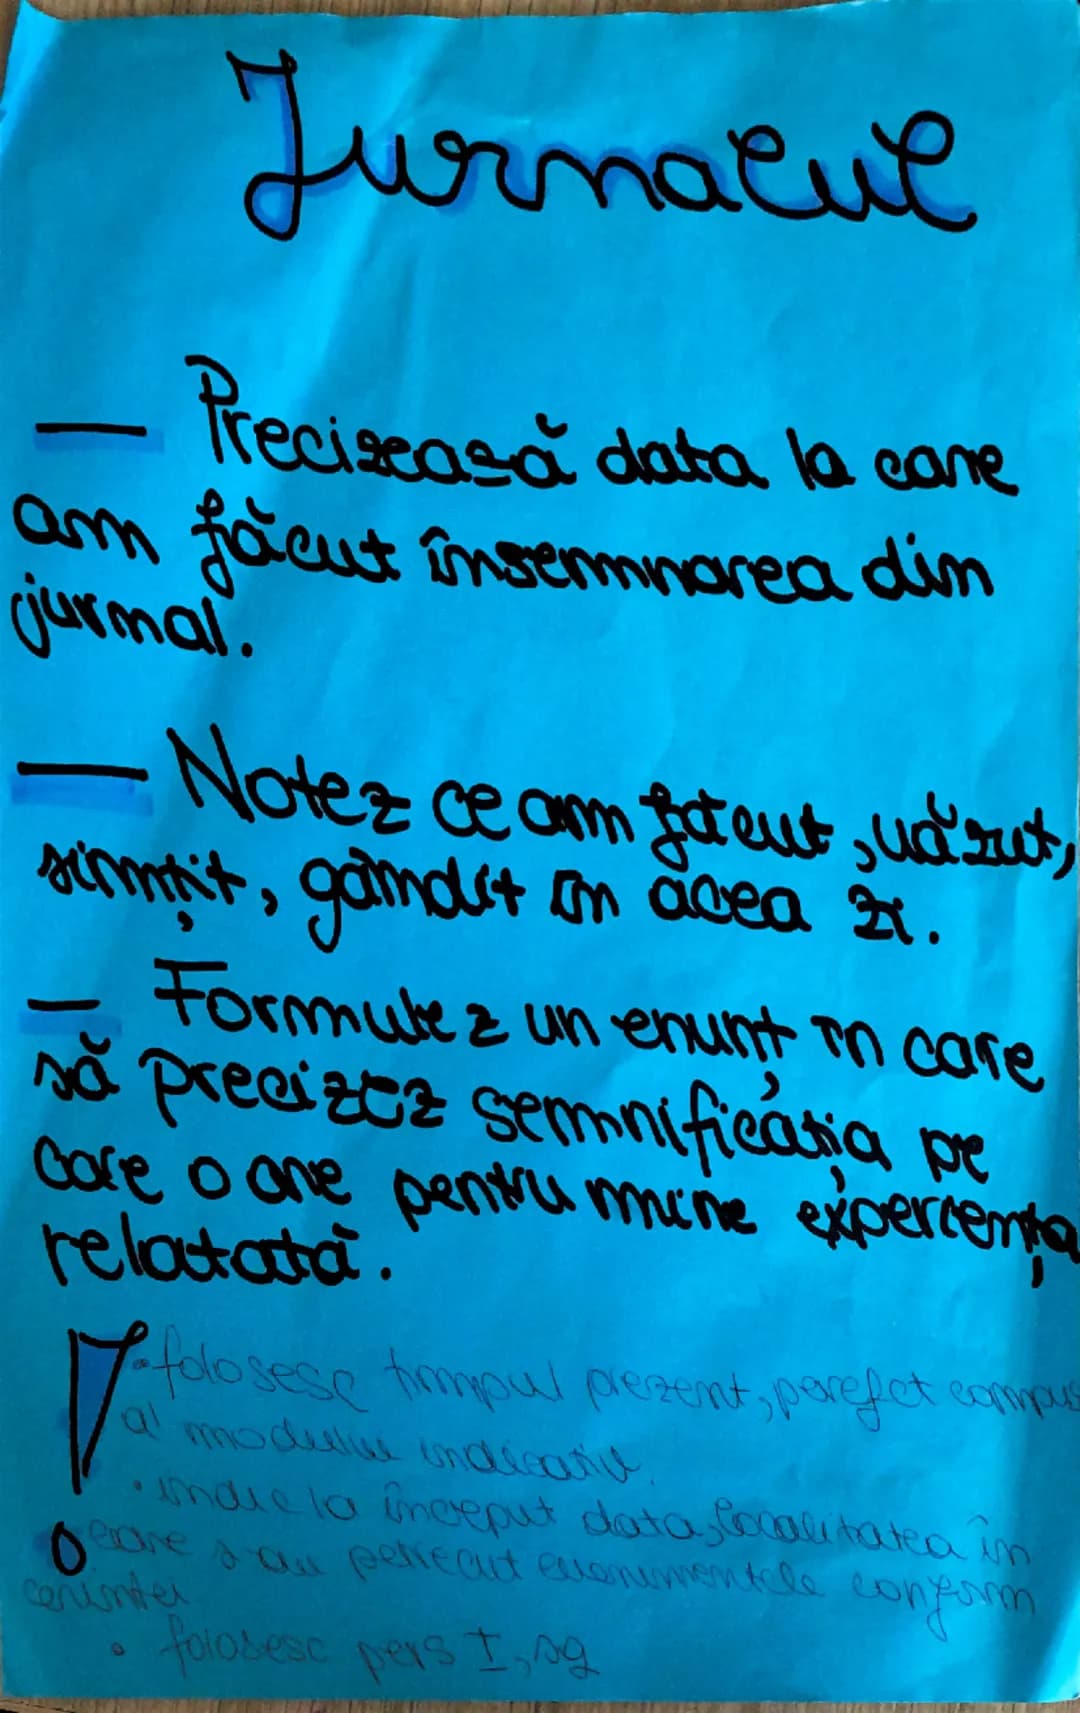 Jurnalul
— Precizează data la care
am făcut însemnarea din
jurnal.
— Notez ce am făcut, văzut,
simțit, gândit în acea zi.
— Formulez un enunț în care
să precizez semnificația pe
care o are pentru mine experiența
relatată.
• folosesc timpul prezent, perefct compus
al modului indicativ.
• indic la început data, localitatea în
care s-au petrecut evenimentele conform
cerinței
• folosesc pers I, sg